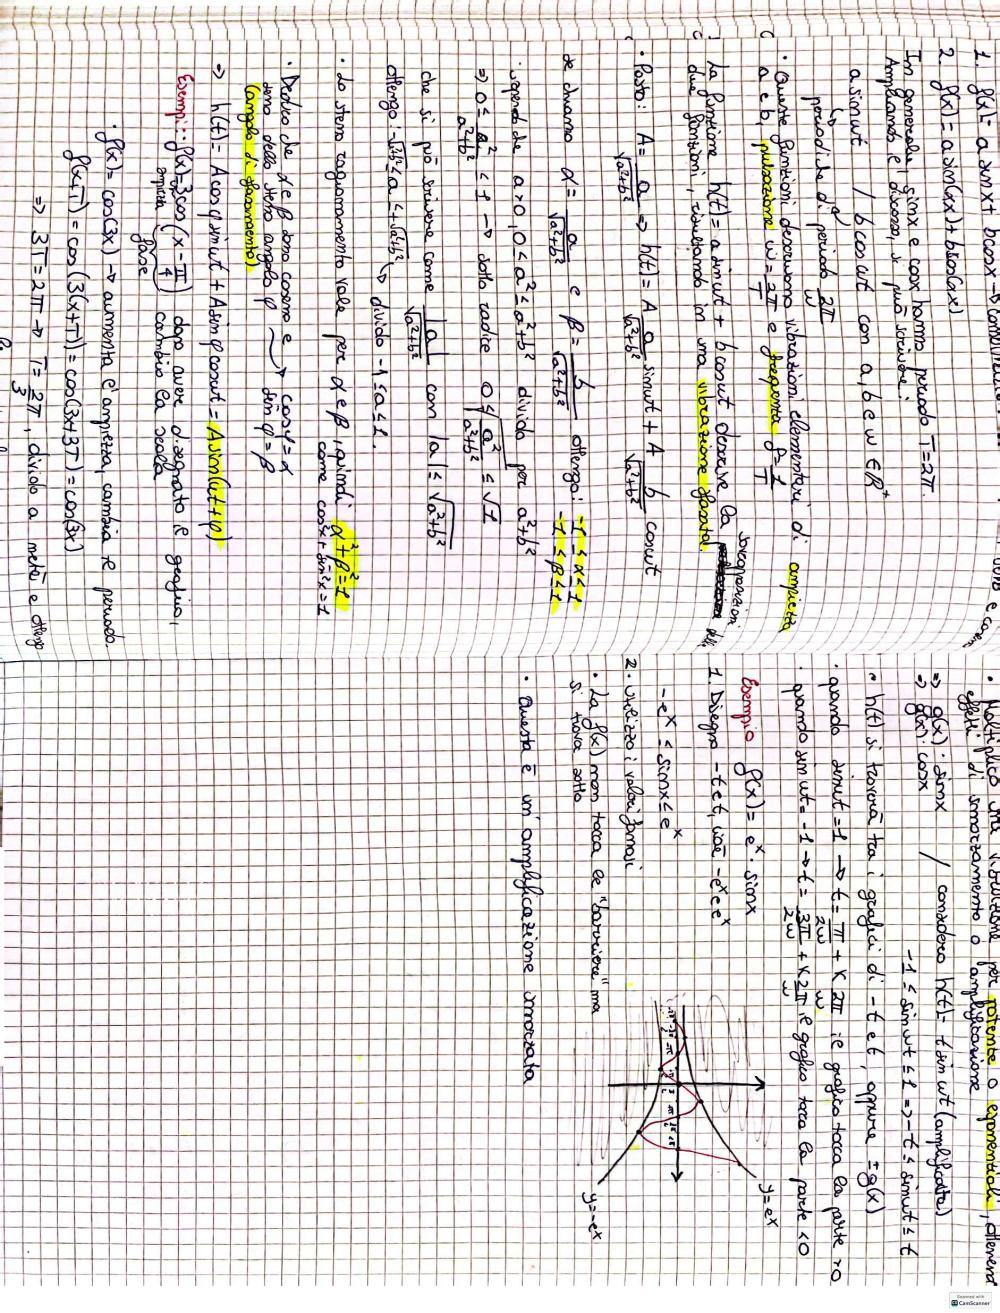 1. f(x) = a sinx + bcosx →
2. f(x) = a sin(ωx) + bcos(ωx)
In generale, sinx e cosx hanno periodo T=2π
Ampliando il discorso, si può scrivere:
asinωt / bcosωt con a, b e ω ∈ℝ⁺
↳ periodiche di periodo 2π/ω
• Queste funzioni descrivono vibrazioni elementari di ampiezza
a e b, pulsazione ω = 2π/T e frequenza f = 1/T
La funzione h(t) = a sinωt + b cosωt descrive la sovrapposizione delle
due funzioni, risultando in una vibrazione sfasata.
• Posto: A = a/√a²+b² ⇒ h(t) = A a/√a²+b² sinωt + A b/√a²+b² cosωt
se chiamo α = a/√a²+b² e β = b/√a²+b² ottengo: -1 ≤ α ≤ 1
-1 ≤ β ≤ 1
• sapendo che a>0, 0 ≤ a² ≤ a²+b² divido per a²+b²
⇒ 0 ≤ a²/a²+b² ≤ 1 → sotto radice 0 ≤ √a²/a²+b² ≤ √1
che si può scrivere come |a|/√a²+b² con |a| ≤ √a²+b²
ottengo -√a²+b² ≤ a ≤ +√a²+b² ↳ divido -1 ≤ a ≤ 1.
• Lo stesso ragionamento vale per α e β, quindi α²+β²=1
come cos²x + sin²x = 1
• Deduco che α e β sono coseno e → cosφ = α
seno dello stesso angolo φ → sinφ = β
(angolo di sfasamento)
⇒ h(t) = Acosφ sinωt + Asinφ cosωt = Asin(ωt+φ)
Esempi: • f(x) = 3cos(x - π/4) dopo aver disegnato il grafico,
ampiezza fase cambio la scala
• f(x) = cos(3x) → aumenta l'ampiezza, cambia il periodo.
f(x+T) = cos(3(x+T)) = cos(3x+3T) = cos(3x)
⇒ 3T = 2π → T = 2π/3, divido a metà e ottengo
• Moltiplico una vibrazione per potenze o esponenziali, ottenendo
effetti di smorzamento o amplificazione
⇒ g(x) · sinx
⇒ g(x) · cosx / considero h(t) = t sin ωt (amplificata)
-1 ≤ sinωt ≤ 1 => -t ≤ sinωt ≤ t
• h(t) si troverà tra i grafici di -t e t, oppure ±g(x)
• quando sinωt = 1 → t = π/2ω + K 2π/ω il grafico tocca la parte >0
• quando sinωt = -1 → t = 3π/2ω + K 2π/ω il grafico tocca la parte <0
Esempio f(x) = eˣ · sinx
1. Disegno -t e t, cioè -eˣ e eˣ
-eˣ ≤ sinx ≤ eˣ
2. Utilizzo i valori famosi
• La f(x) non tocca le "barriere" ma
si trova sotto
• Questa è un'amplificazione smorzata
y = eˣ
y = -eˣ
Scanned with
CamScanner